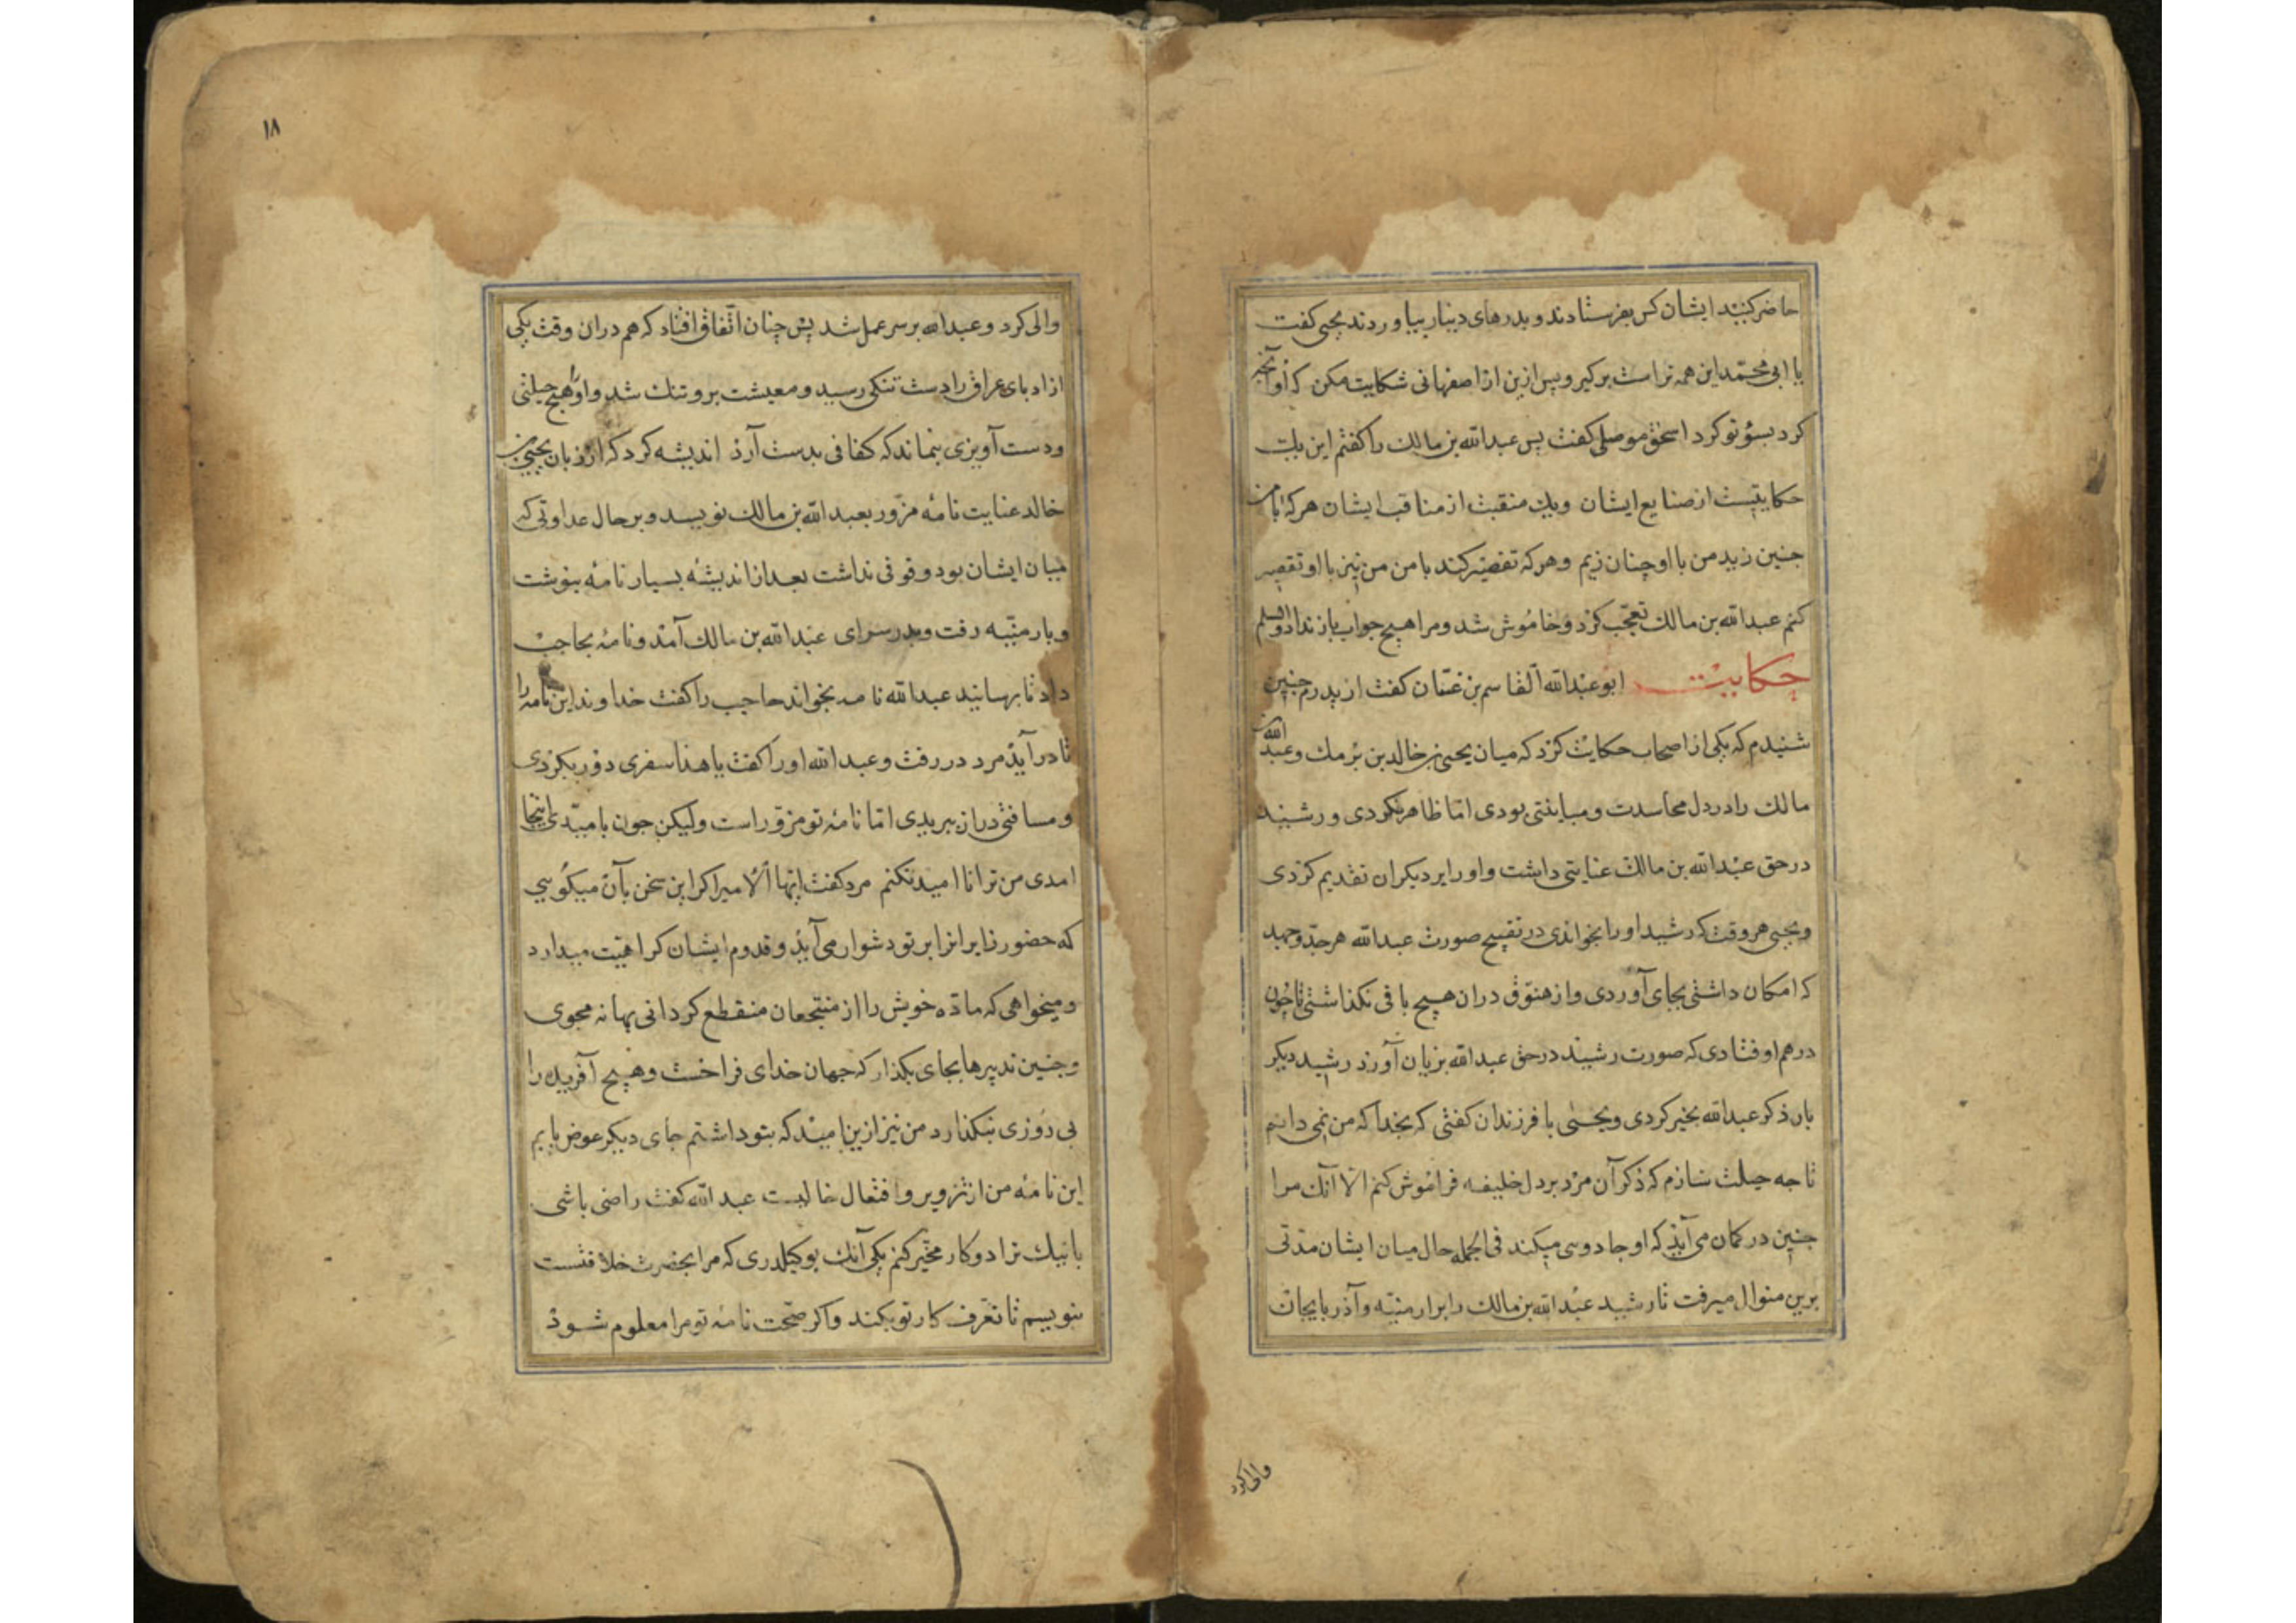 حاضر کنید ایشان کس بفرستادند و بدرهای دینار بیاوردند یحیی کفت
یا ابی محمّد این همه تراست برکیر و پس ازین از اصفهانی شکایت مکن که او آنچه
کرد بسؤ تو کرد اسحق موصلی کفت پس عبدالله بن مالک را کفتم این یک
حکایتیست از صنایع ایشان ویک منقبت از مناقب ایشان هرکه با من
چنین زید من با او چنان زیم و هرکه تقصیر کند با من من نیز با او تقصیر
کنم عبدالله بن مالک تعجّب کرد و خاموش شد و مرا هیچ جواب باز نداد والسلم
حکایت ابو عبدالله القاسم بن غسّان کفت از پدرم چنین
شنیدم که یکی از اصحاب حکایت کرد که میان یحیی بن خالد بن برمک و عبدالله
مالک را در دل محاسدت و مباینتی بودی امّا ظاهر نکردی و رشید
در حق عبدالله بن مالک عنایتی داشت و او را بر دیکران تقدیم کردی
و یحیی هر وقت که رشید او را بخواندی در تقبیح صورت عبدالله هر جدّ و جهد
که امکان داشتی بجای آوردی و از هتوّق دران هیچ باقی نکذاشتی تا چون
درهم اوفتادی که صورت رشید در حق عبدالله بزیان آورد رشید دیکر
بار ذکر عبدالله بخیر کردی و یحیی با فرزندان کفتی که بخدا که من نمی دانم
تا چه حیلت سازم که ذکر آن مرد بر دل خلیفه فراموش کنم الّا آنک مرا
چنین در کمان می آید که او جادوسی میکند فی الجمله حال میان ایشان مدّتی
برین منوال میرفت تا رشید عبدالله بن مالک را برارمنیّه و آذربایجان
والی کرد
۱۸
والی کرد و عبدالله بر سر عمل شد پس چنان اتّفاق افتاد که هم دران وقت یکی
از ادبای عراق را دست تنکی رسید و معیشت برو تنک شد و او را هیچ حیلتی
و دست آویزی بنماند که کفافی بدست آرد اندیشه کرد که از زبان یحیی بن
خالد عنایت نامه مزوّر بعبدالله بن مالک نویسد و بر حال عداوتی که
میان ایشان بود وقوفی نداشت بعد از اندیشهٔ بسیار نامه بنوشت
و بارمنیّه رفت و بدر سرای عبدالله بن مالک آمد و نامه بحاجب
داد تا برسانید عبدالله نامه بخواند حاجب را کفت خداوند این نامه را
تا درآید مرد در رفت و عبدالله او را کفت یا هذا سفری دور بکردی
و مسافتی دراز ببریدی امّا نامهٔ تو مزوّر است ولیکن چون بامیّدی اینجا
امدی من ترا نا امید نکنم مرد کفت ایّها الامیر اکر این سخن بآن میکویی
که حضور زایران بر تو دشوار می آید و قدوم ایشان کراهیّت میدارد
و میخواهی که مادّه خویش را از منتجعان منقطع کردانی بهانه مجوی
و چنین تدبیرها بجای بکذار که جهان خدای فراخست و هیچ آفریده را
بی روزی نکذارد من نیز ازین امید که بتو داشتم جای دیکر عوض یابم
این نامهٔ من از تزویر و افتعال خالیست عبدالله کفت راضی باشی
بانیک ترا دو کار مخیّر کنم یکی آنک بوکیلدری که مرا بحضرت خلافتست
بنویسم تا تعرّف کار تو بکند و اکر صحّت نامهٔ تو مرا معلوم شود